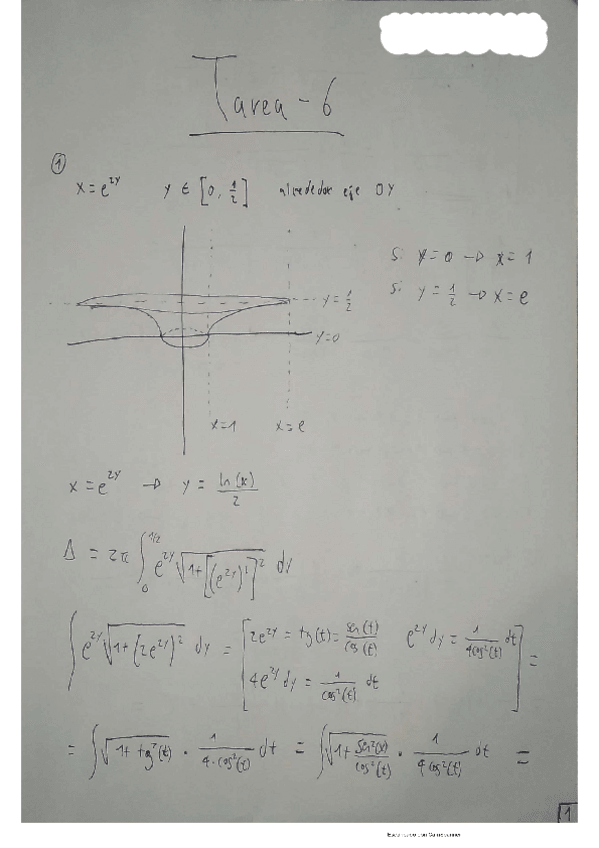 Tarea - 6
①
x = e^{2y} y ∈ [0, 1/2] alrededor eje OY
Si y = 0 → x = 1
Si y = 1/2 → x = e
y = 1/2
y=0
x=1 x=e
x = e^{2y} → y = ln(x)/2
= 2π ∫_0^{1/2} e^{2y} √(1+[(e^{2y})']^2) dy
∫ e^{2y} √(1+(2e^{2y})^2) dy = [2e^{2y} = tg(t) = sen(t)/cos(t) e^{2y} dy = 1/(4cos²(t)) dt
4e^{2y} dy = 1/cos²(t) dt] =
= ∫ √(1+tg²(t)) · 1/(4·cos²(t)) dt = ∫ √(1+sen²(x)/cos²(t)) · 1/(4cos²(t)) dt =
1
Escaneado con CamScanner